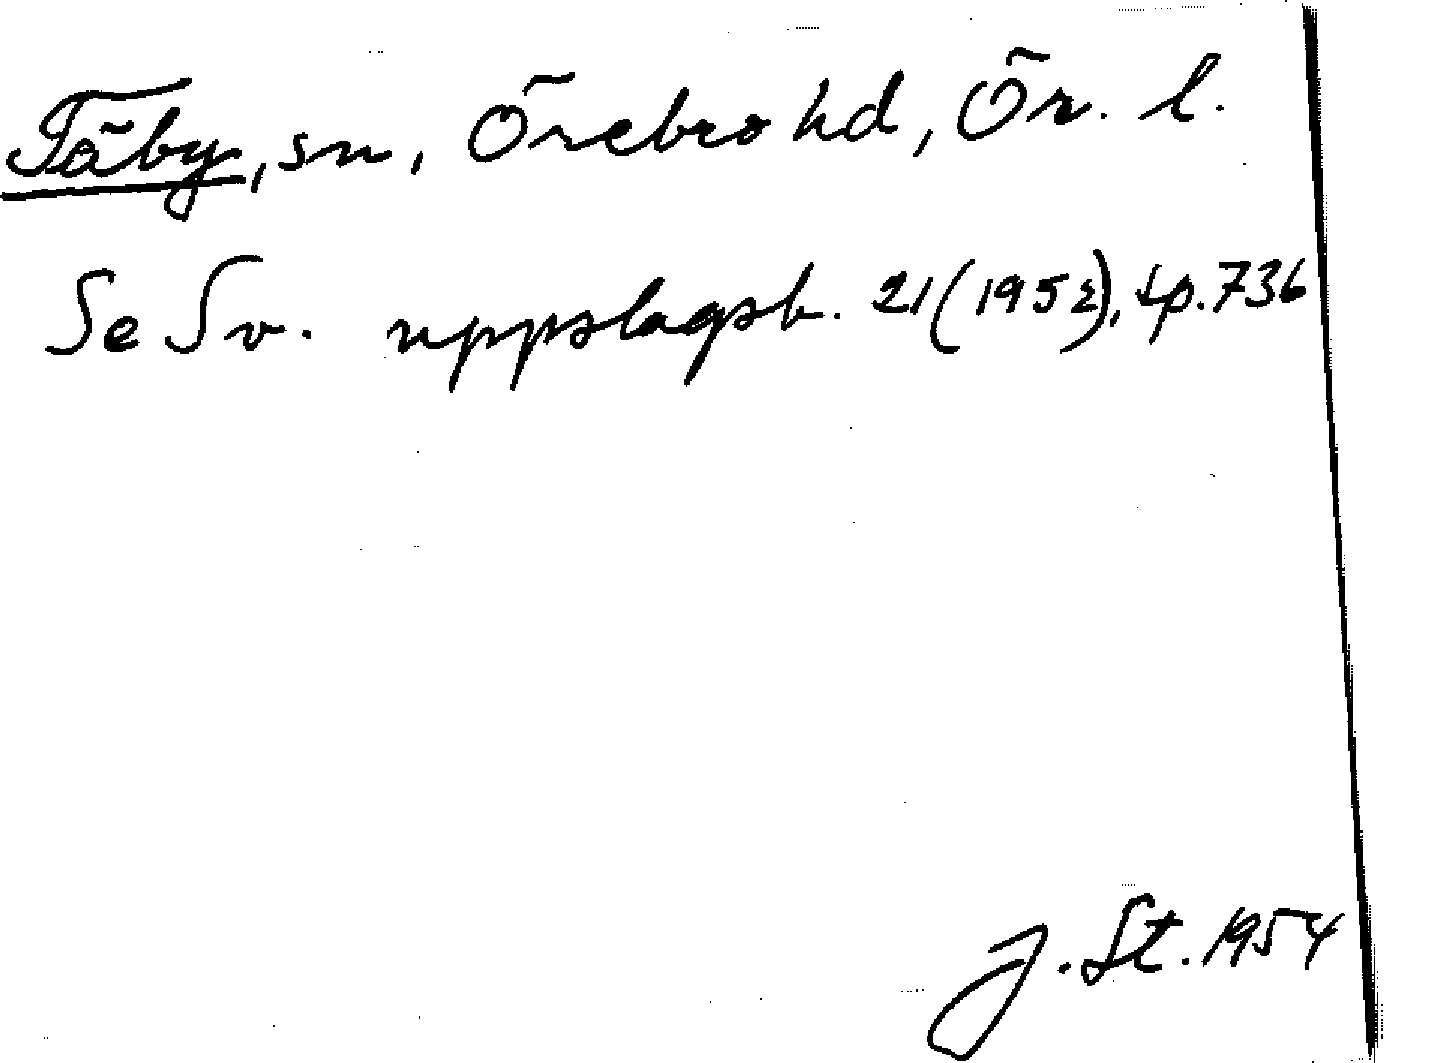 Täby, sn, Örebro hd, Ör. l.
Se Sv. uppslagsb. 21 (1952), sp. 736
J. St. 1954